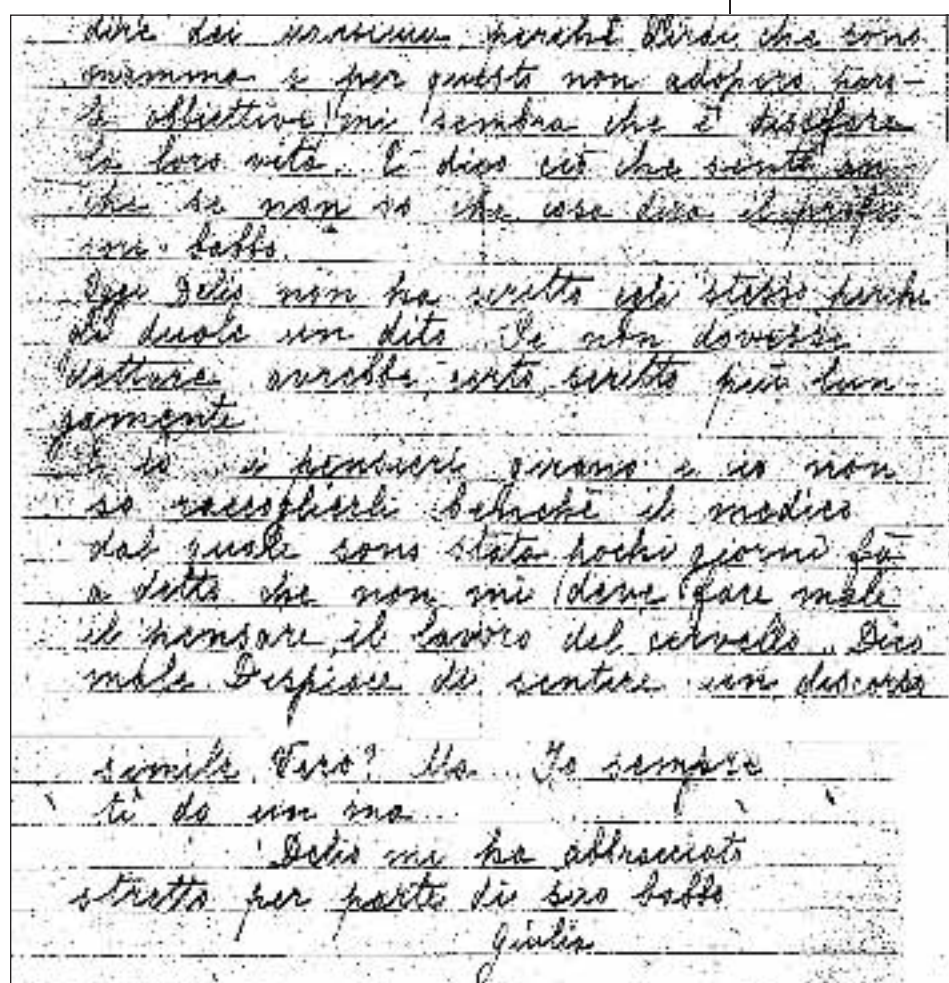 dire dei                perchè Dirai che sono
mamma e per questo non adopero paro-
le obbiettive mi sembra che è
la loro vita. E dico ciò che sento an-
che se non so che cosa dica il
     babbo.
Oggi Delio non ha scritto egli stesso perchè
li duole un dito. Se non dovesse
dettare avrebbe certo scritto più lun-
gamente
E io... i pensieri girano e io non
so raccoglierli benchè il medico
dal quale sono stata pochi giorni fà
a detto che non mi deve fare male
il pensare, il lavoro del cervello. Dico
male Dispiace di sentire un discorso
simile. Vero? Ma... Io sempre
ti do un ma...
Delio mi ha abbracciato
stretto per parte di suo babbo
Giulia